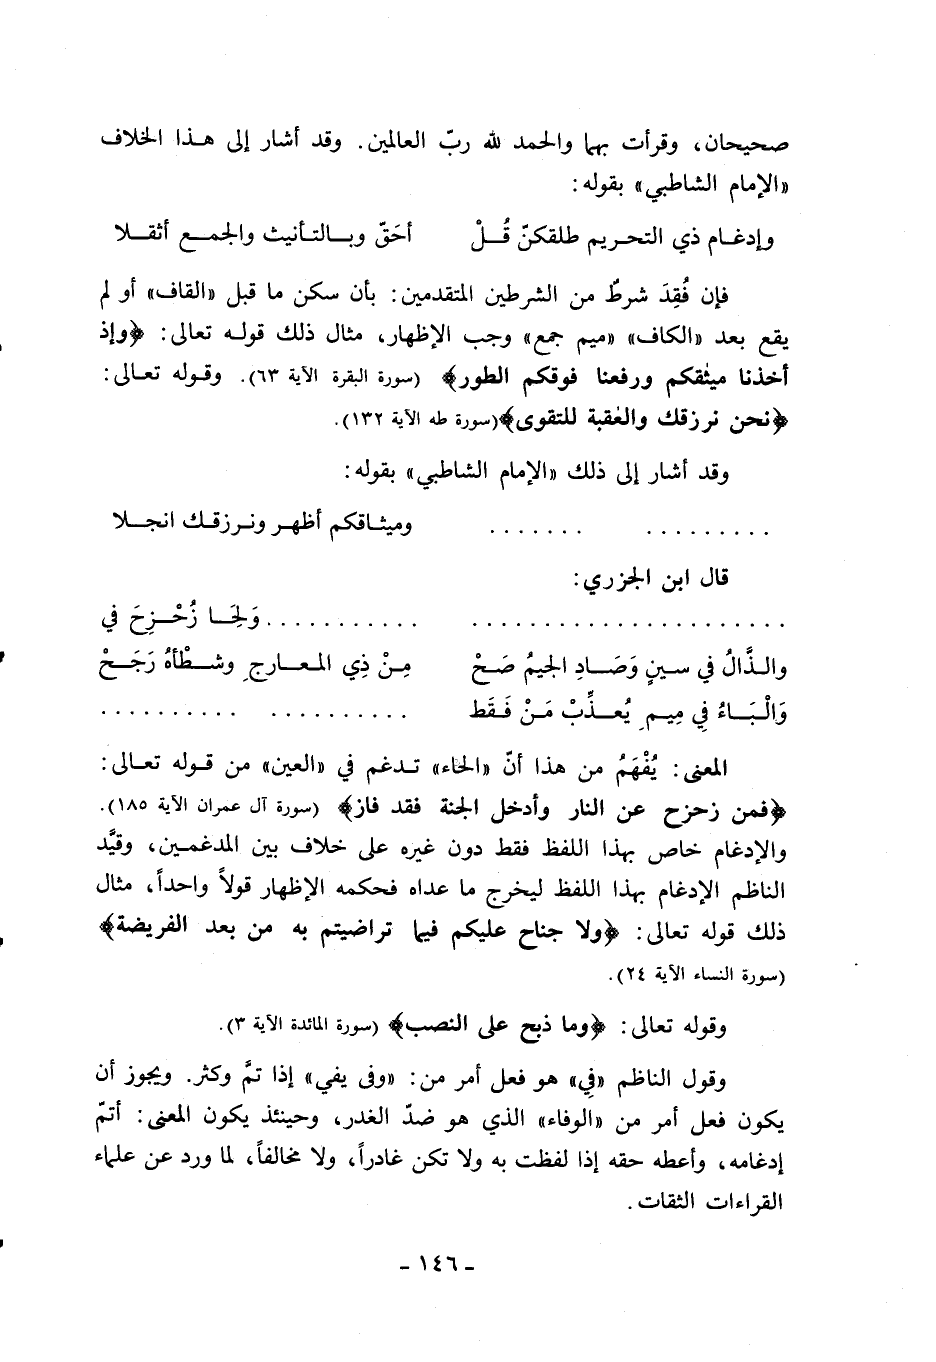 صحيحان، وقرأت بهما والحمد لله ربّ العالمين. وقد أشار إلى هذا الخلاف
«الإمام الشاطبي» بقوله:
وإدغام ذي التحريم طلقكنّ قُلْ أحَقّ وبالتأنيث والجمع أثقلا
فإن فُقِدَ شرطٌ من الشرطين المتقدمين: بأن سكن ما قبل «القاف» أو لم
يقع بعد «الكاف» «ميم جمع» وجب الإظهار، مثال ذلك قوله تعالى: ﴿وإذ
أخذنا ميثقكم ورفعنا فوقكم الطور﴾ (سورة البقرة الآية ٦٣). وقوله تعالى:
﴿نحن نرزقك والعقبة للتقوى﴾(سورة طه الآية ١٣٢).
وقد أشار إلى ذلك «الإمام الشاطبي» بقوله:
......... ....... وميثاقكم أظهر ونرزقك انجلا
قال ابن الجزري:
...................... ...........وَلِحَا زُحْزِحَ فِي
والذَّالُ في سينٍ وَصَادِ الجيمُ صَحْ مِنْ ذِي المعارجِ وشطْأهُ رَجَحْ
وَالْبَاءُ فِي مِيمِ يُعذِّبْ مَنْ فَقَط .......... ..........
المعنى: يُفْهَمُ من هذا أنّ «الحاء» تدغم في «العين» من قوله تعالى:
﴿فمن زحزح عن النار وأدخل الجنة فقد فاز﴾ (سورة آل عمران الآية ١٨٥).
والإدغام خاص بهذا اللفظ فقط دون غيره على خلاف بين المدغمين، وقيَّد
الناظم الإدغام بهذا اللفظ ليخرج ما عداه فحكمه الإظهار قولاً واحداً، مثال
ذلك قوله تعالى: ﴿ولا جناح عليكم فيما تراضيتم به من بعد الفريضة﴾
(سورة النساء الآية ٢٤).
وقوله تعالى: ﴿وما ذبح على النصب﴾ (سورة المائدة الآية ٣).
وقول الناظم «فِي» هو فعل أمر من: «وفى يفي» إذا تمَّ وكثر. ويجوز أن
يكون فعل أمر من «الوفاء» الذي هو ضدّ الغدر، وحينئذ يكون المعنى: أتمّ
إدغامه، وأعطه حقه إذا لفظت به ولا تكن غادراً، ولا مخالفاً، لما ورد عن علماء
القراءات الثقات.
- ١٤٦ -